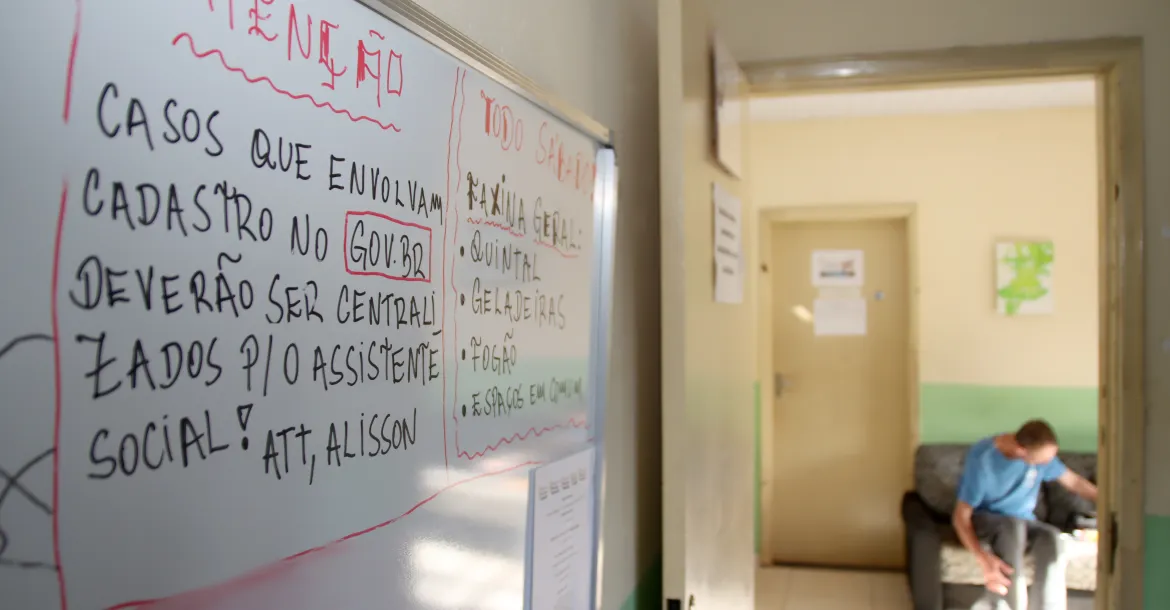 ATENÇÃO
CASOS QUE ENVOLVAM
CADASTRO NO GOV.BR
DEVERÃO SER CENTRALI
ZADOS P/O ASSISTENTE
SOCIAL! ATT, ALISSON
TODO SÁBADO!
FAXINA GERAL:
• QUINTAL
• GELADEIRAS
• FOGÃO
• ESPAÇOS EM COMUM